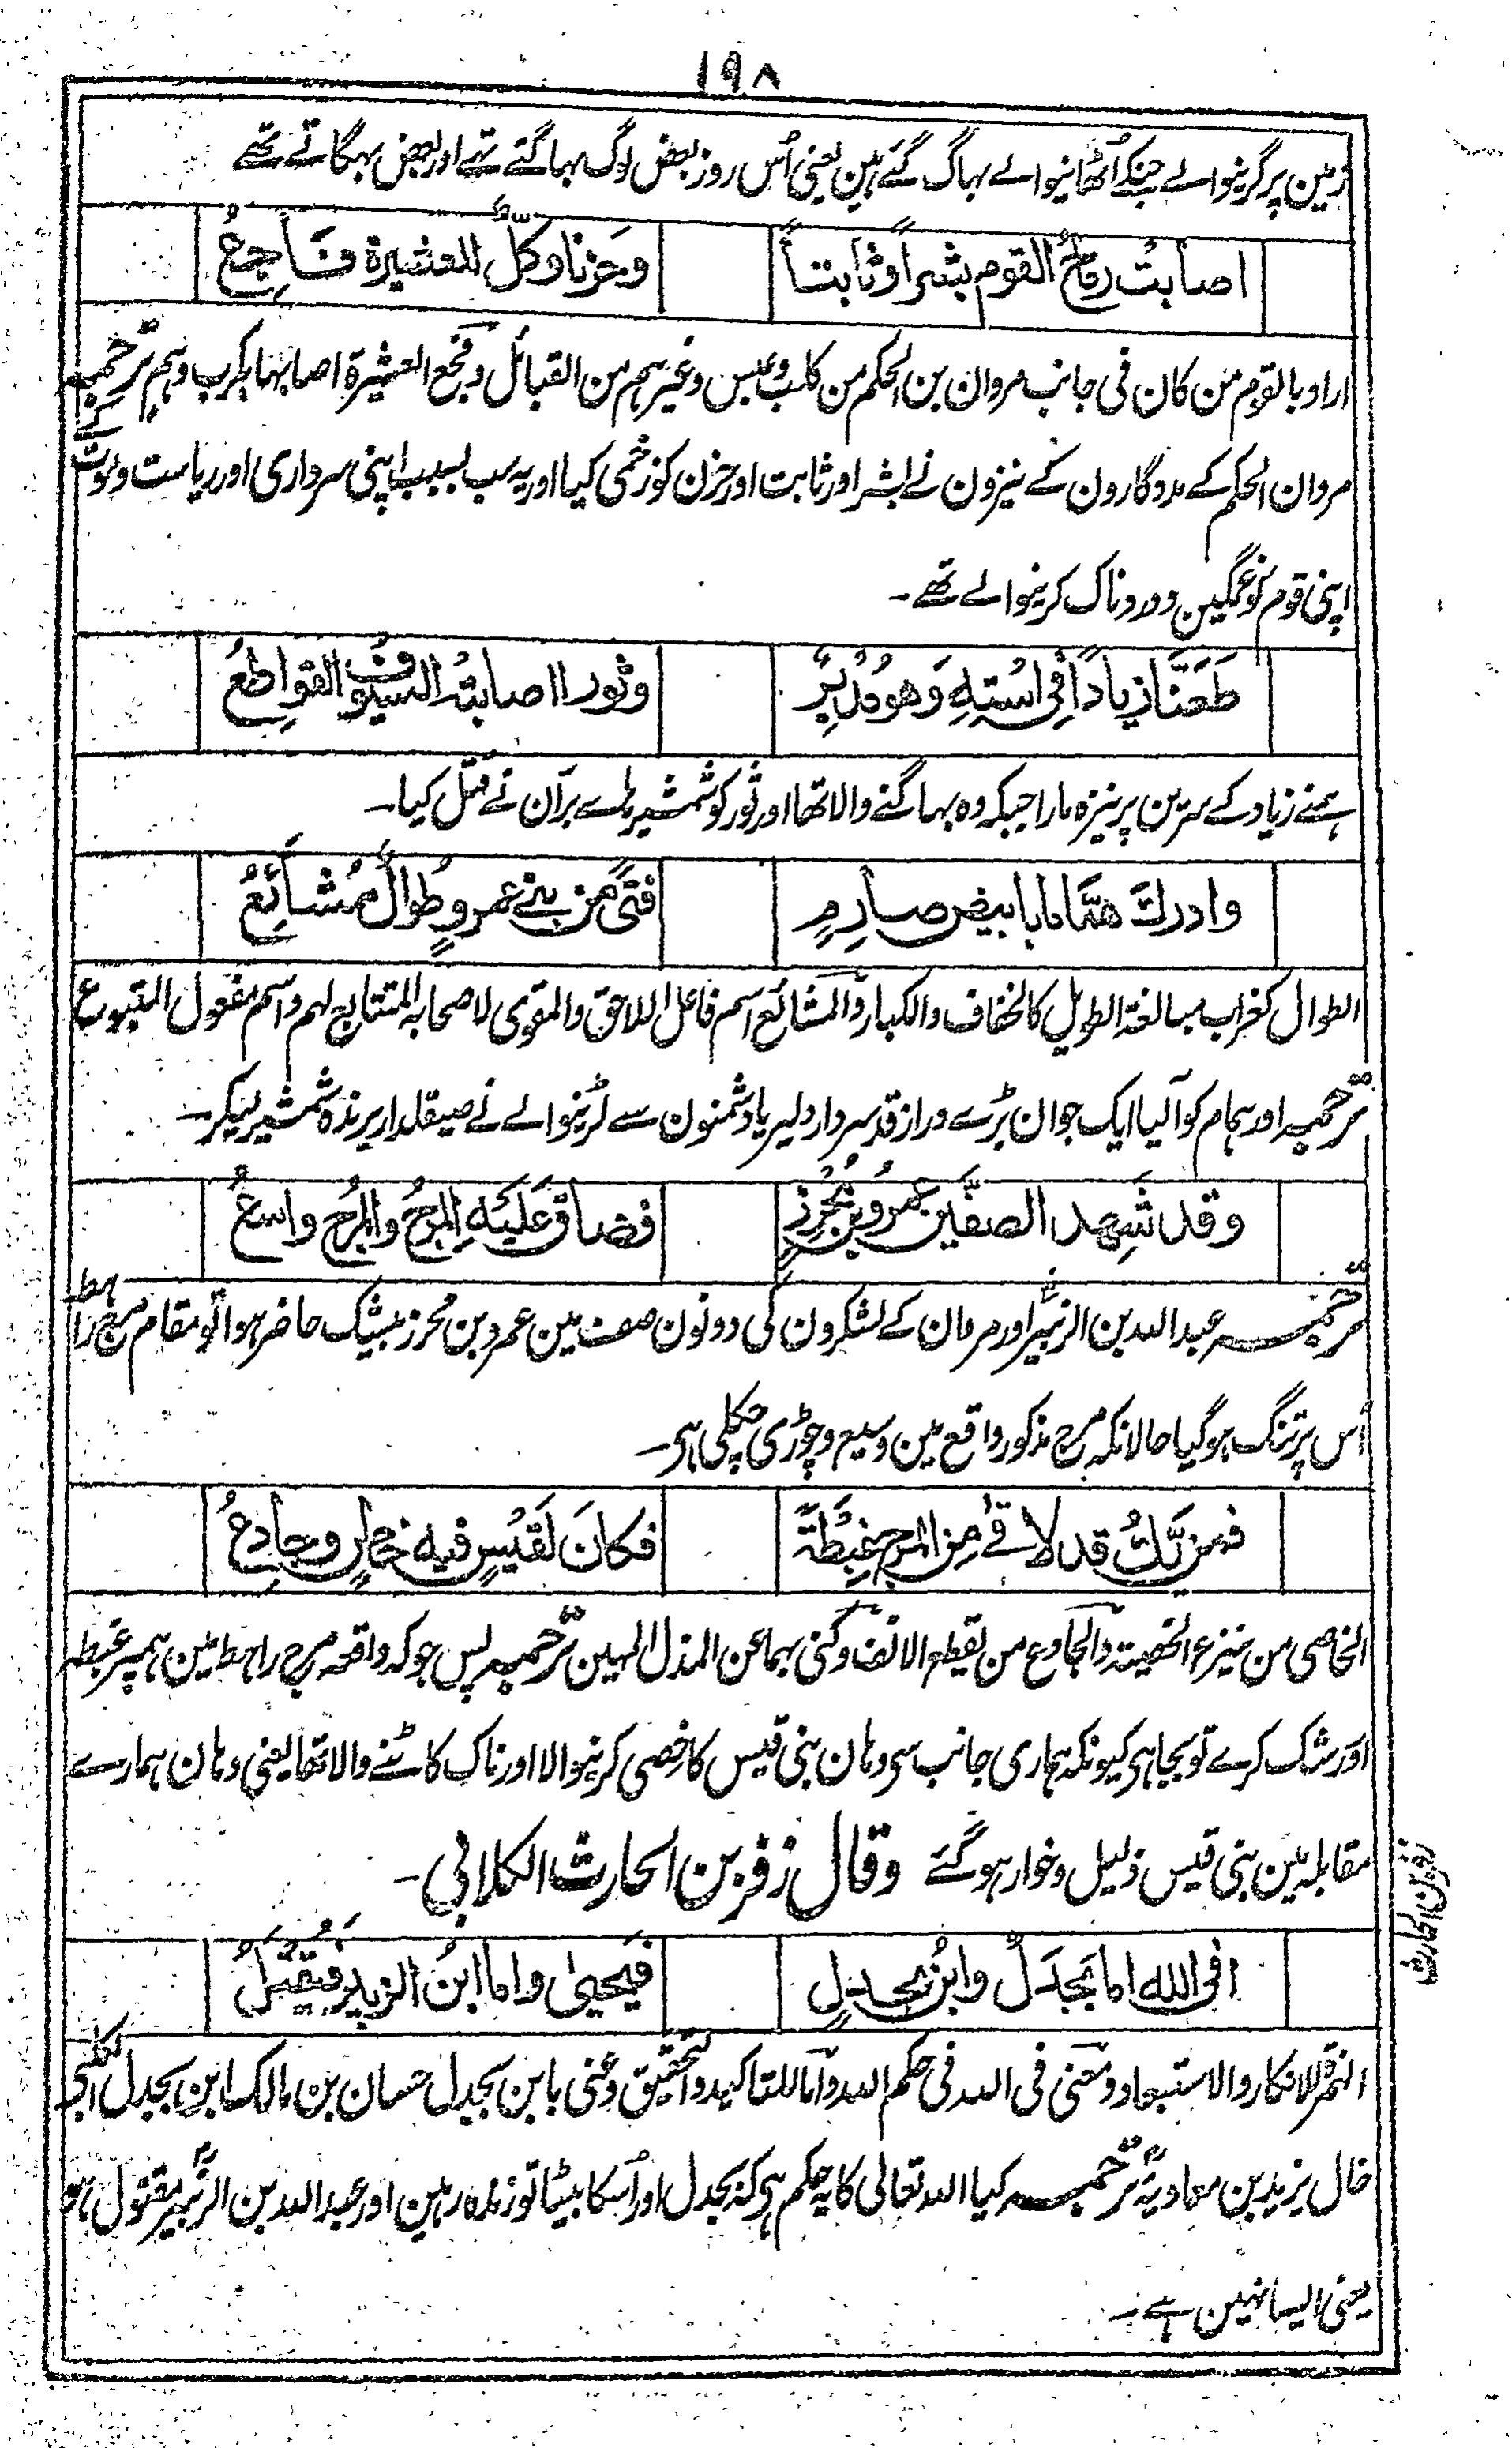 ۱۹۸
زمین پر گرینوالے جنکے اُٹھانیوالے بہاگ گئے ہین یعنی اُس روز بعض لوگ بہاگئے تہے اور بعض بہگاتے تھے
اصابتْ رماحُ القوم بشراً وثابتاً وحَزنا وکلٌّ للعشیرۃ فَاجِعُ
اراد بالقوم من کان فی جانب مروان بن الحکم من کلب وعبس وغیرہم من القبائل وفجع العشیرۃ اصابہا بکرب وہم ترجمہ
مروان الحکم کے مددگارون کے نیزون نے بشر اور ثابت اور حزن کو زخمی کیا اور یہ سب بسبب اپنی سرداری اور ریاست و موت کے
اپنی قوم کو غمگین و دردناک کرینوالے تھے۔
طَعَنَّا زیاداً فِی اسْتِهِ وَهوَ مُدْبِرٌ وثورا اصابتْه السیوفُ القواطِعُ
ہمنے زیاد کے سرین پر نیزہ مارا جبکہ وہ بہاگنے والا تھا اور ثور کو شمشیرہاے بران نے قتل کیا۔
وادرك هَمَّاما بابیض صارِمٍ فتًی مِن بنی عمرٍو طُوالٌ مُشَائِعُ
الطوال کغراب مبالغۃ الطویل کالخفاف والکبار والمشائع اسم فاعل اللاحق والمقوی لاصحابہ المتتابع لہم واسم مفعول المتبوع
ترجمہ اور ہمام کو آلیا ایک جوان بڑے دراز قد سردار دلیر یا دشمنون سے لڑنیوالے نے صیقلدار برندہ شمشیر لیکر۔
وقد شَهِد الصفَّین عمرُو بنُ مُحْرِزٍ فضاق عَلَیهِ المرجُ والمرج واسعُ
ترجمہ عبداللہ بن الزبیر اور مروان کے لشکرون کی دونون صف مین عمرو بن محرز بیشک حاضر ہوا تو مقام مرج راہط
اُس پر تنگ ہوگیا حالانکہ مرج مذکور واقع مین وسیع و چوڑی چکلی ہی۔
فمن یَّكُ قد لاقٰی مِن المرج غبطَةً فکانَ لقَیْسٍ فیه خاصٍ وجادِعُ
الخاصی من ینزع الخصیتہ والجادع من یقطع الانف وکنی بہما عن المذل المہین ترجمہ پس جو کہ واقعہ مرج راہط مین ہمپر غبطہ
اور رشک کرے تو بجا ہی کیونکہ ہماری جانب سی وہان بنی قیس کا خصی کرنیوالا اور ناک کاٹنے والا تھا یعنی وہان ہمارے
مقابلہ مین بنی قیس ذلیل وخوار ہوگئے وقال زفر بن الحارث الکلابی۔
زفر بن الحارث
افی الله اما بَجدَلٌ وابنُ بجدلٍ فیَحییٰ واما ابنُ الزبیر فیُقتَلُ
الہمزۃ للانکار والاستبعاد ومعنی فی اللہ فی حکم اللہ واما للتاکید والتحقیق وعنی بابن بجدل حسان بن مالک ابن بجدل الکلبی
خال یزید بن معاویۃ ترجمہ کیا اللہ تعالی کا یہ حکم ہی کہ بجدل اور اُسکا بیٹا تو زندہ رہین اور عبداللہ بن الزبیر مقتول ہو
یعنی ایسا نہین ہے۔